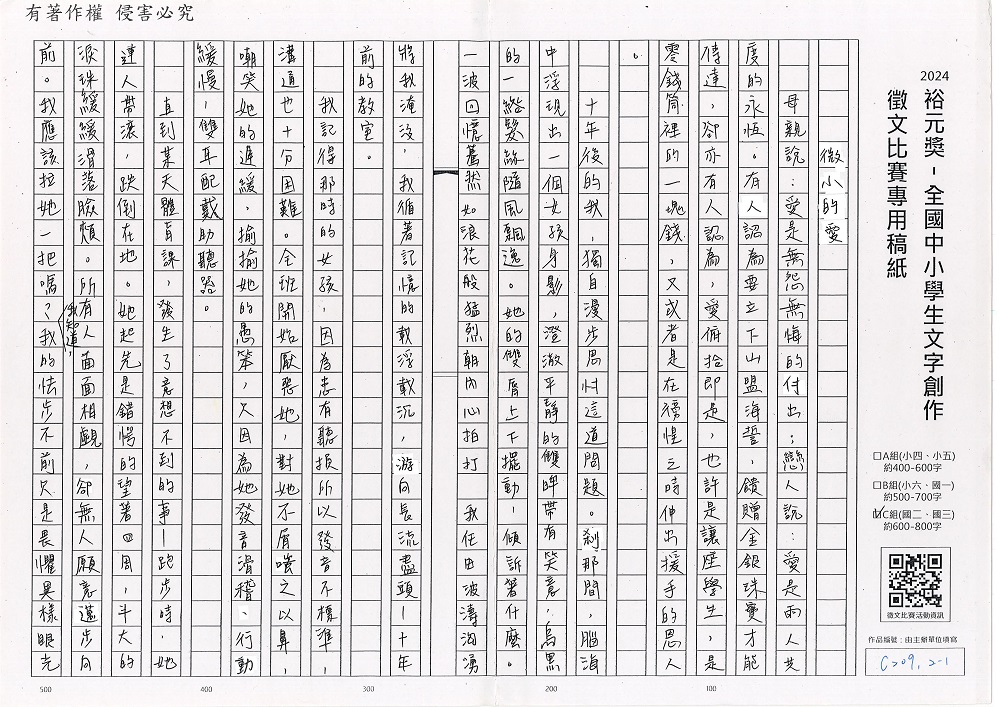 有著作權 侵害必究
2024
裕元獎-全國中小學生文字創作
徵文比賽專用稿紙
□A組(小四、小五)
約400-600字
□B組(小六、國一)
約500-700字
☑C組(國二、國三)
約600-800字
徵文比賽活動資訊
作品編號：由主辦單位填寫
C209,2-1
微小的愛
母親說：愛是無怨無悔的付出；戀人說：愛是兩人共
度的永恆。有人認為要立下山盟海誓，饋贈金銀珠寶才能
傳達，卻亦有人認為，愛俯拾即是，也許是讓座學生，是
零錢筒裡的一塊錢，又或者是在徬徨之時伸出援手的恩人
。
十年後的我，獨自漫步思忖這道問題。剎那間，腦海
中浮現出一個女孩身影，澄澈平靜的雙眸帶有笑意，烏黑
的一綹髮絲隨風飄逸。她的雙唇上下擺動，傾訴著什麼。
一波回憶驀然如浪花般猛烈朝內心拍打，我任由波濤洶湧
將我淹沒，我循著記憶的載浮載沉，游向長流盡頭—十年
前的教室。
我記得那時的女孩，因為患有聽損所以發音不標準，
溝通也十分困難。全班開始厭惡她，對她不屑嗤之以鼻，
嘲笑她的遲緩，揄揄她的愚笨，只因為她發音滑稽、行動
緩慢，雙耳配戴助聽器。
直到某天體育課，發生了意想不到的事—跑步時，她
連人帶滾，跌倒在地。她起先是錯愕的望著四周，斗大的
淚珠緩緩滑落臉頰。所有人面面相覷，卻無人願意邁步向
前。我應該拉她一把嗎？我知道，我的怯步不前只是畏懼異樣眼光
100
200
300
400
500